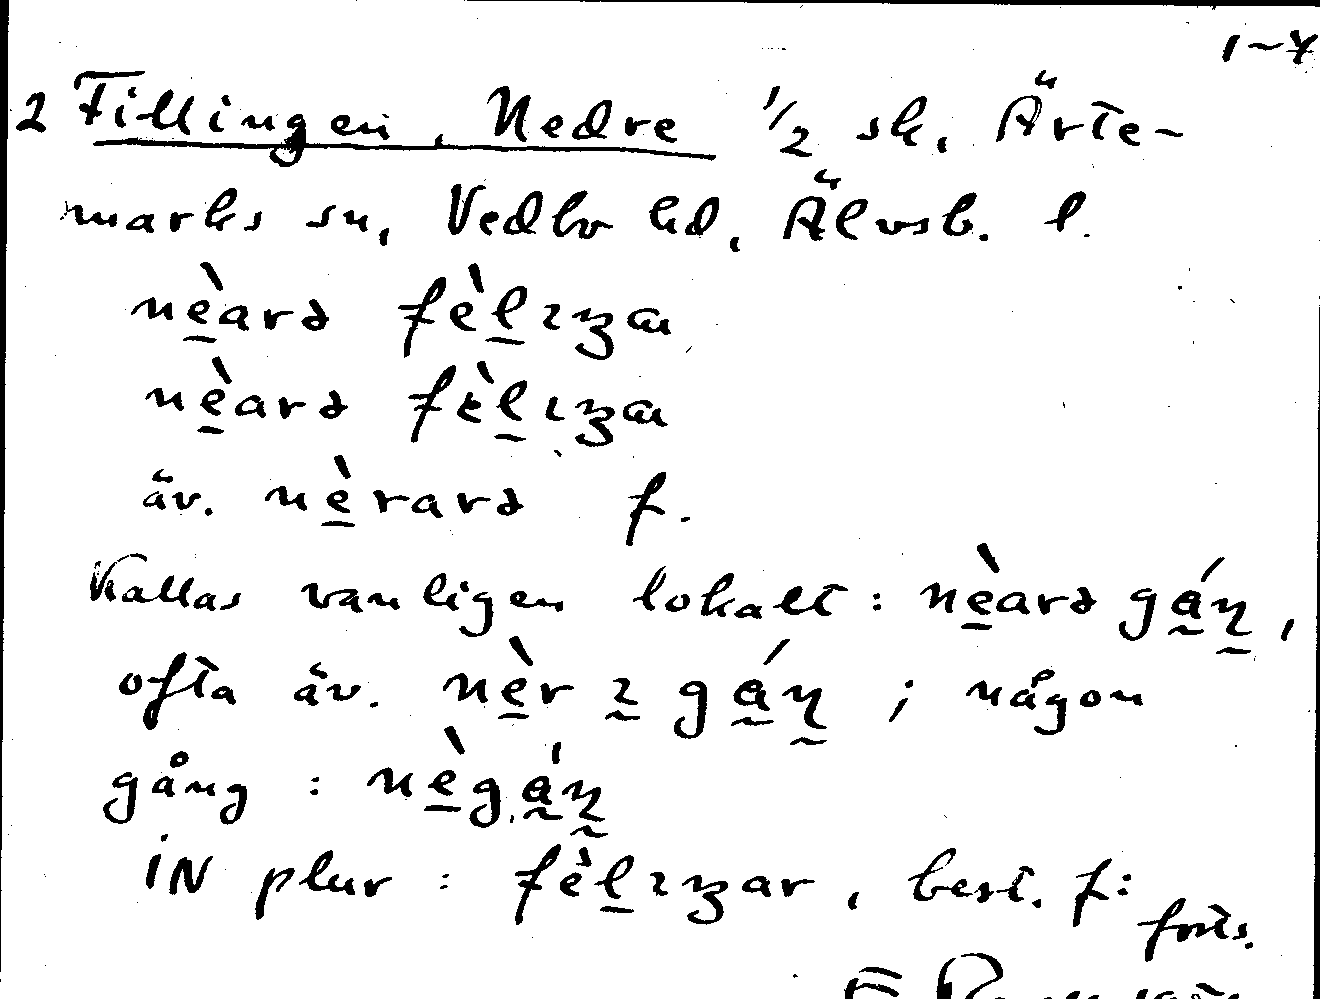 1-4
2 Fillingen, Nedre 1/2 sk, Ärte-
marks sn, Vedbo hd, Älvsb. l.
nèarə fèlɩŋan
nèarə fèlɩŋan
äv. nèrarə f.
Kallas vanligen lokalt: nèarə gáŋ,
ofta äv. nèr ɩ gáŋ ; någon
gång : nègáŋ
iN plur : fèlɩŋar, best. f:
forts.